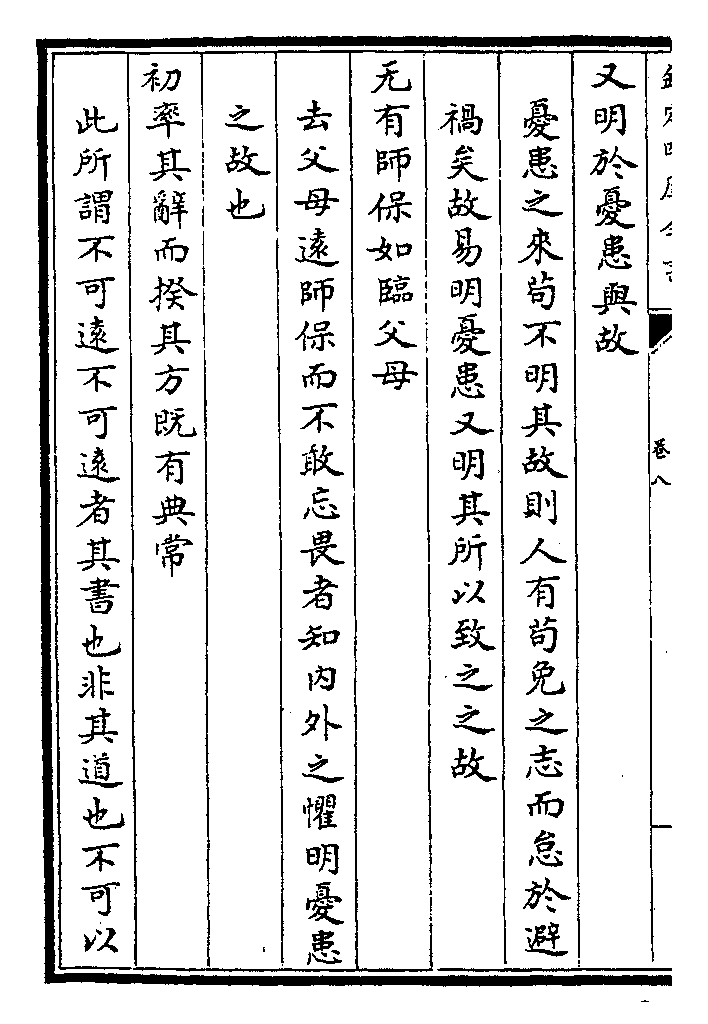 欽定四庫全書
卷八
又明於憂患與故
憂患之來茍不明其故則人有茍免之志而怠於避
禍矣故易明憂患又明其所以致之之故
无有師保如臨父母
去父母遠師保而不敢忘畏者知內外之懼明憂患
之故也
初率其辭而揆其方既有典常
此所謂不可遠不可遠者其書也非其道也不可以